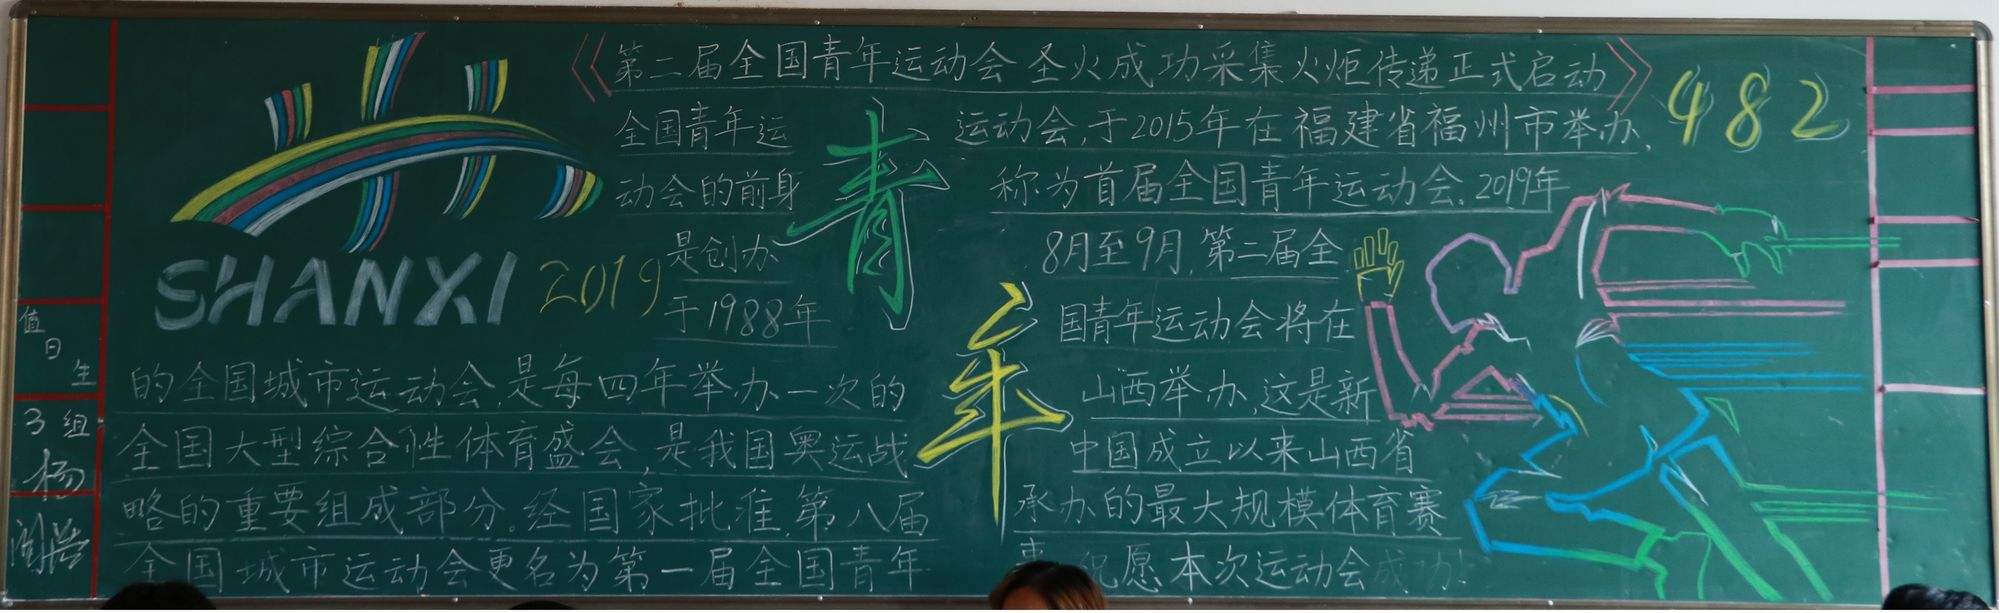 《第二届全国青年运动会圣火成功采集火炬传递正式启动》
482
SHANXI 2019
青年
全国青年运
动会的前身
是创办
于1988年
的全国城市运动会,是每四年举办一次的
全国大型综合性体育盛会,是我国奥运战
略的重要组成部分。经国家批准,第八届
全国城市运动会更名为第一届全国青年
运动会,于2015年在福建省福州市举办,
称为首届全国青年运动会。2019年
8月至9月,第二届全
国青年运动会将在
山西举办,这是新
中国成立以来山西省
承办的最大规模体育赛
事,祝愿本次运动会成功!
值日生
3组
杨